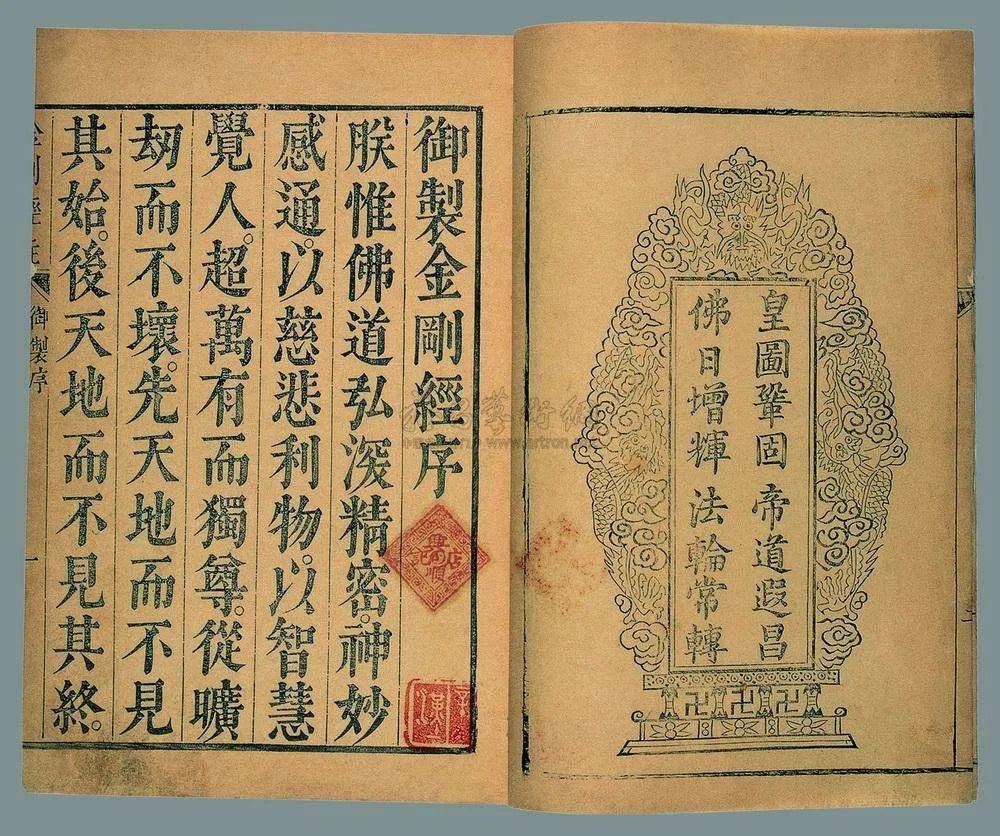 皇圖鞏固 帝道遐昌
佛日增輝 法輪常轉
御製金剛經序
朕惟佛道弘深精密。神妙
感通。以慈悲利物。以智慧
覺人。超萬有而獨尊。從曠
劫而不壞。先天地而不見
其始。後天地而不見其終。
御製序
一
www.artron.net